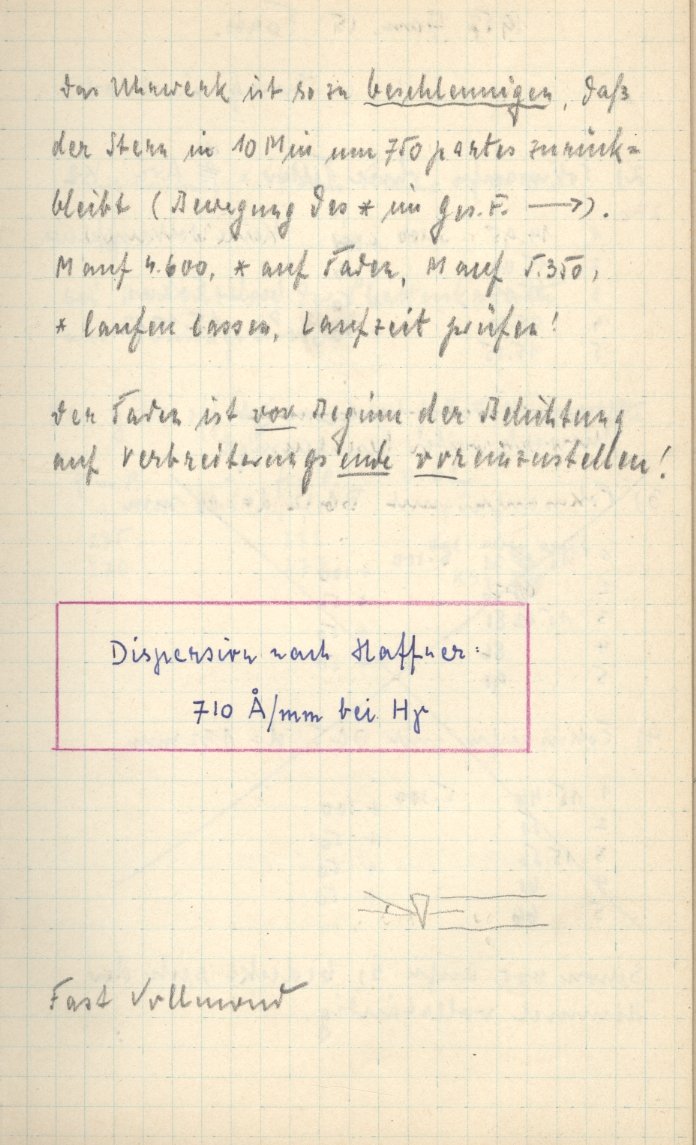 Das Uhrwerk ist so zu beschleunigen, daß
der Stern in 10 Min um 750 partes zurück=
bleibt (Bewegung des * im Ges. F. →).
M auf 4.600, * auf Faden, M auf 5.350,
* laufen lassen, Laufzeit prüfen!
Der Faden ist vor Beginn der Belichtung
auf Verbreiterungsende voreinzustellen!
Dispersion nach Haffner:
710 Å/mm bei Hγ
Fast Vollmond